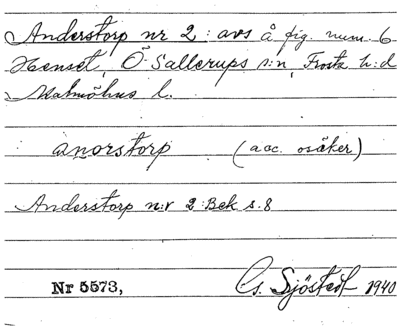 Anderstorp nr 2 : avs å fig. num. 6
Henset, Ö. Sallerups s:n, Frosta h:d
Malmöhus l.
anorstorp (acc. osäker)
Anderstorp n:r 2 : Bek s. 8
Nr 5573, G. Sjöstedt 1940